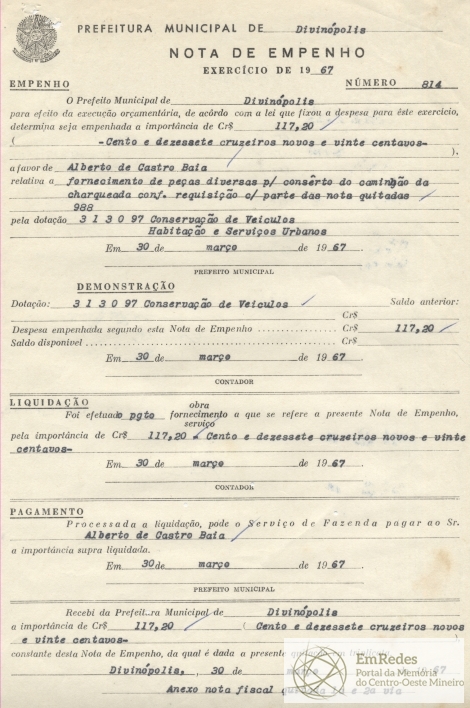 PREFEITURA MUNICIPAL DE Divinópolis
NOTA DE EMPENHO
EXERCÍCIO DE 19 67
EMPENHO NÚMERO 814
O Prefeito Municipal de Divinópolis
para efeito da execução orçamentária, de acôrdo com a lei que fixou a despesa para êste exercício,
determina seja empenhada a importância de Cr$ 117,20
( -Cento e dezessete cruzeiros novos e vinte centavos-
).
a favor de Alberto de Castro Baia
relativa a fornecimento de peças diversas p/ consêrto do caminhão da
charqueada conf. requisição c/ parte das nota quitadas
988
pela dotação 3 1 3 0 97 Conservação de Veiculos
Habitação e Serviços Urbanos
Em 30 de março de 19 67
PREFEITO MUNICIPAL
DEMONSTRAÇÃO
Dotação: 3 1 3 0 97 Conservação de Veiculos Saldo anterior:
Cr$
Despesa empenhada segundo esta Nota de Empenho Cr$ 117,20
Saldo disponível Cr$
Em 30 de março de 19 67
CONTADOR
LIQUIDAÇÃO
obra
Foi efetuado pgto fornecimento a que se refere a presente Nota de Empenho,
serviço
pela importância de Cr$ 117,20 - Cento e dezessete cruzeiros novos e vinte
centavos-
Em 30 de março de 19 67
CONTADOR
PAGAMENTO
Processada a liquidação, pode o Serviço de Fazenda pagar ao Sr.
Alberto de Castro Baia
a importância supra liquidada.
Em 30 de março de 19 67
PREFEITO MUNICIPAL
Recebi da Prefeitura Municipal de Divinópolis
a importância de Cr$ 117,20 ( Cento e dezessete cruzeiros novos
e vinte centavos-
constante desta Nota de Empenho, da qual é dada a presente
Divinópolis, 30 de março 67
Anexo nota fiscal
EmRedes
Portal da Memória
do Centro-Oeste Mineiro